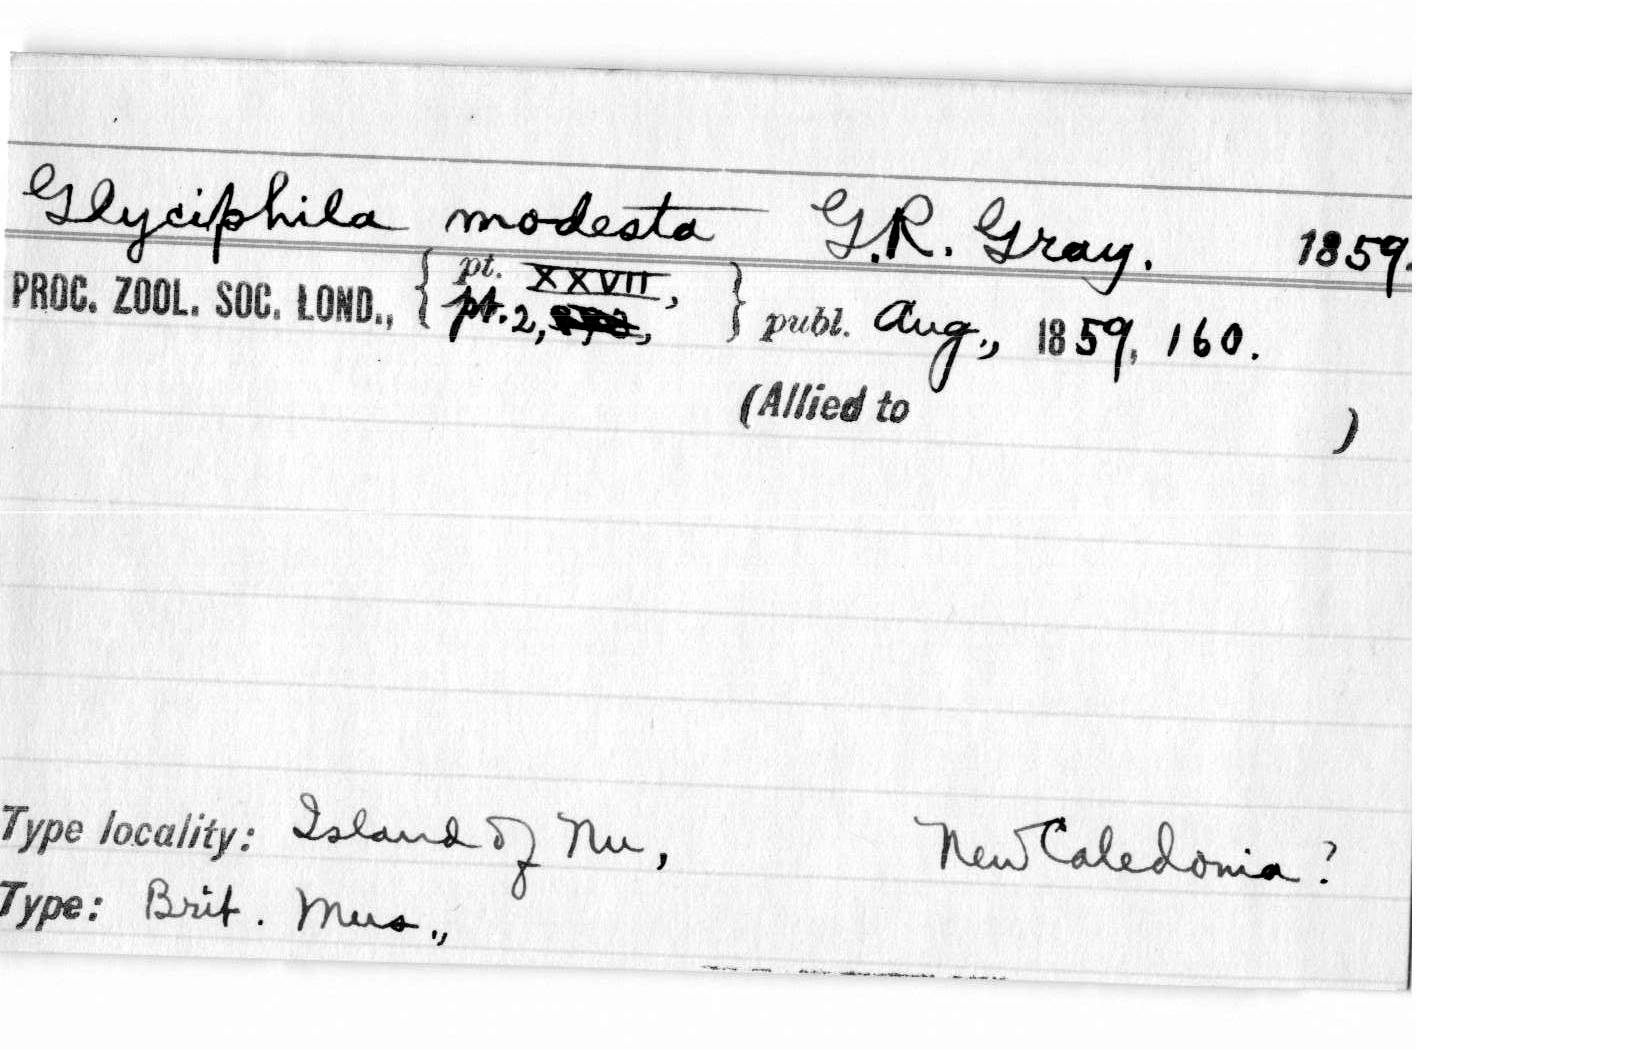 Glyciphila modesta G.R. Gray. 1859.
PROC. ZOOL. SOC. LOND., { pt. XXVII, pt. 2, } publ. Aug., 1859, 160.
(Allied to )
Type locality: Island of Nu, New Caledonia?
Type: Brit. Mus.,